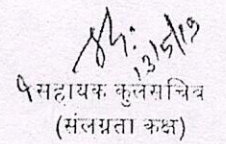 13/5/19
सहायक कुलसचिव
(संलग्नता कक्ष)